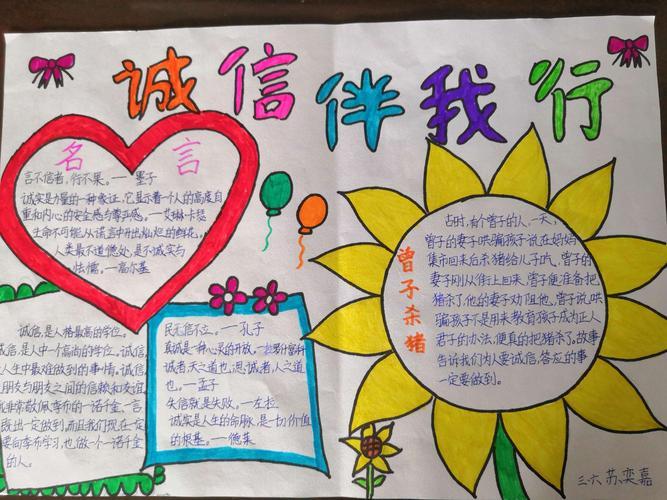 诚信伴我行
名言
言不信者，行不果。——墨子
诚实是力量的一种象征，它显示着一个人的高度自
重和内心的安全感与尊严感。——艾琳·卡瑟
生命不可能从谎言中开出灿烂的鲜花。
人类最不道德处，是不诚实与
怯懦。——高尔基
诚信，是人格最高的学位。
诚信，是人中一个高尚的学位。诚信，
人生中最难做到的事情。诚信，
朋友与朋友之间的信赖和友谊。
非常敬佩季布的一诺千金、言
既出一定做到，而且我们现在一定
要向季布学习，也做一个一诺千金
的人。
民无信不立。——孔子
真诚是一种心灵的开放。——拉罗什富科
诚者，天之道也，思诚者，人之道
也。——孟子
失信就是失败。——左拉
诚实是人生的命脉，是一切价值
的根基。——德莱
曾子杀猪
古时，有个曾子的人，一天，
曾子的妻子哄骗孩子说在妈妈
集市回来后杀猪给儿子吃，曾子的
妻子刚从街上回来，曾子便准备把
猪杀了，他的妻子劝阻他，曾子说，哄
骗孩子不是用来教育孩子成为正人
君子的办法，便真的把猪杀了。故事
告诉我们为人要诚信，答应的事
一定要做到。
三六 苏奕嘉